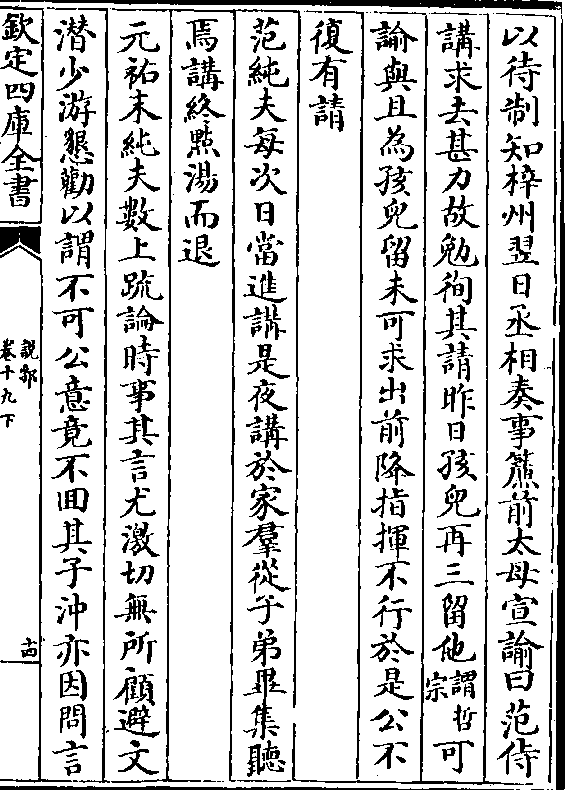 以待制知梓州翌日丞相奏事簾前太母宣諭曰范侍
講求去甚力故勉徇其請昨日孩兒再三留他謂哲宗可
諭與且為孩兒留未可求出前降指揮不行於是公不
復有請
范純夫每次日當進講是夜講於家羣從子弟畢集聽
焉講終㸃湯而退
元祐末純夫數上疏論時事其言尤激切無所顧避文
潜少游懇勸以謂不可公意竟不回其子沖亦因間言
欽定四庫全書
說郛
卷十九下
十四